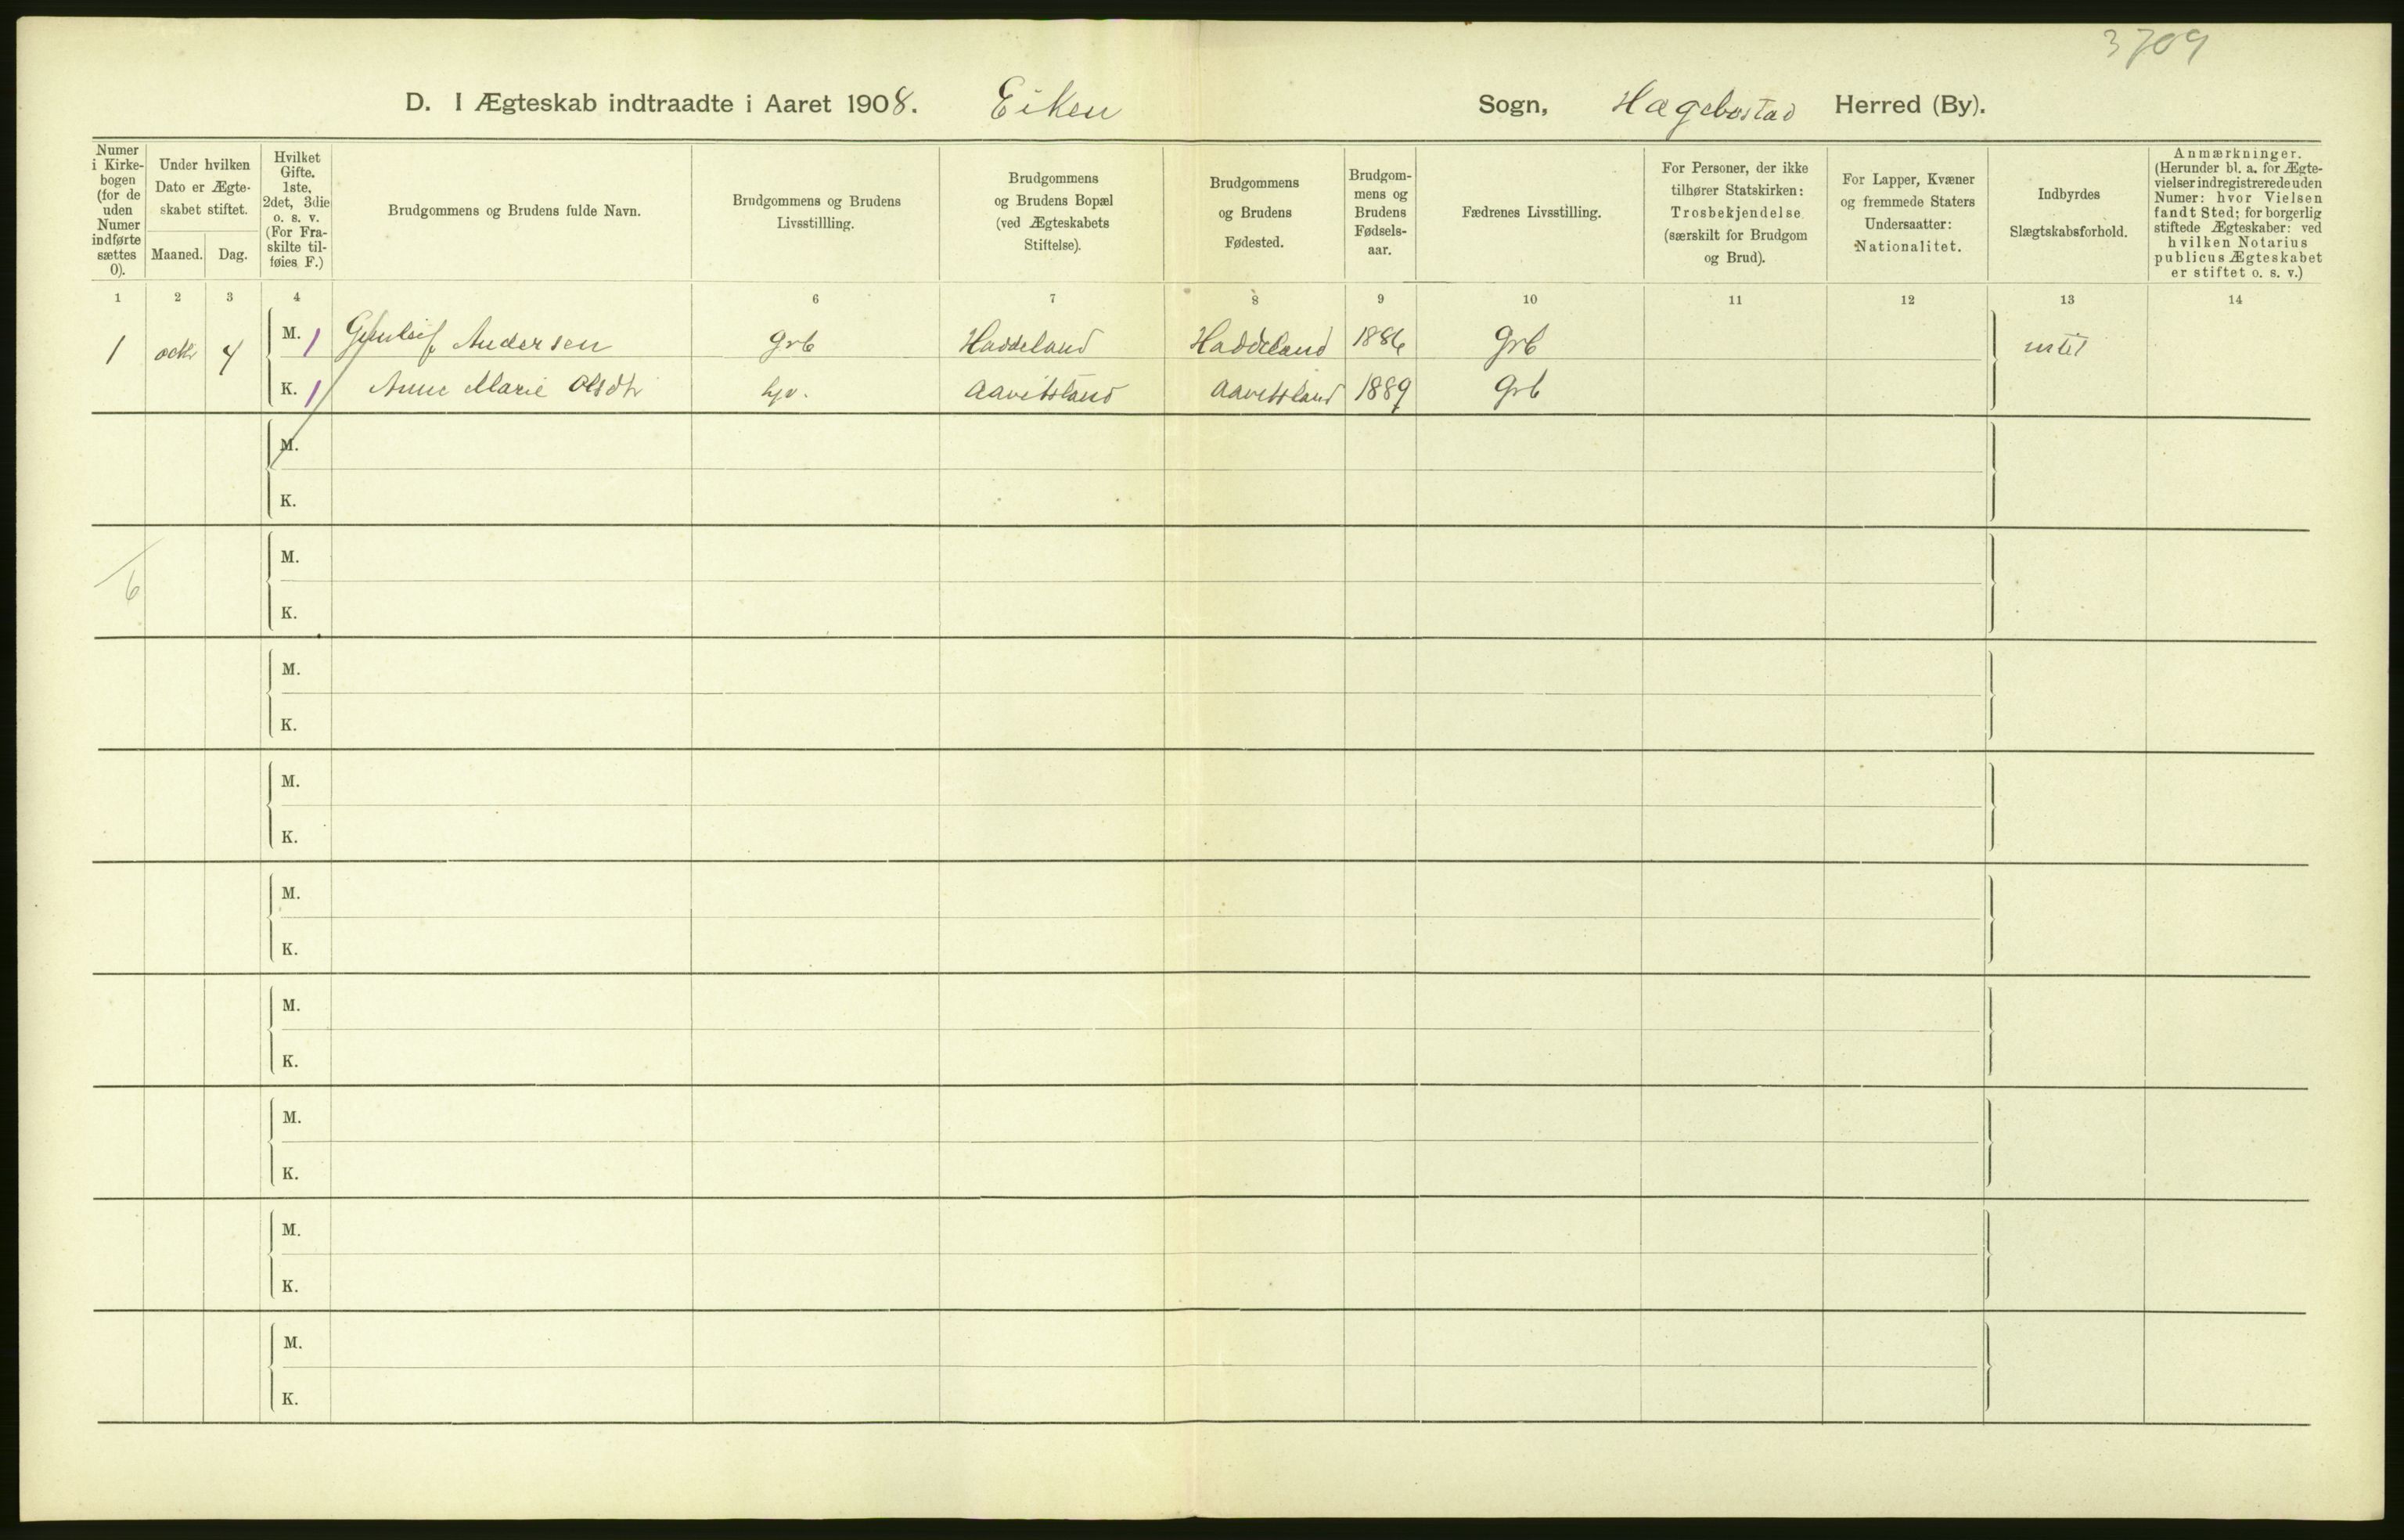 3709
D. I Ægteskab indtraadte i Aaret 1908. Eiken Sogn, Hægebostad Herred (By).
Numer i Kirke-
bogen
(for de
uden
Numer
indførte
sættes
0).
Under hvilken
Dato er Ægte-
skabet stiftet.
Maaned. Dag.
Hvilket
Gifte.
1ste,
2det, 3die
o. s. v.
(For Fra-
skilte til-
føies F.)
Brudgommens og Brudens fulde Navn.
Brudgommens og Brudens
Livsstillling.
Brudgommens
og Brudens Bopæl
(ved Ægteskabets
Stiftelse).
Brudgommens
og Brudens
Fødested.
Brudgom-
mens og
Brudens
Fødsels-
aar.
Fædrenes Livsstilling.
For Personer, der ikke
tilhører Statskirken:
Trosbekjendelse
(særskilt for Brudgom
og Brud).
For Lapper, Kvæner
og fremmede Staters
Undersaatter:
Nationalitet.
Indbyrdes
Slægtskabsforhold.
Anmærkninger.
(Herunder bl. a. for Ægte-
vielser indregistrerede uden
Numer: hvor Vielsen
fandt Sted; for borgerlig
stiftede Ægteskaber: ved
hvilken Notarius
publicus Ægteskabet
er stiftet o. s. v.)
1 2 3 4 6 7 8 9 10 11 12 13 14
1 octbr 4 M. 1 Andersen grb Haddeland Haddeland 1886 Grb intet
K. 1 Anne Marie Olsdtr hjv. Aavitsland Aavitsland 1889 Grb
M.
K.
M.
6
K.
M.
K.
M.
K.
M.
K.
M.
K.
M.
K.
M.
K.
M.
K.